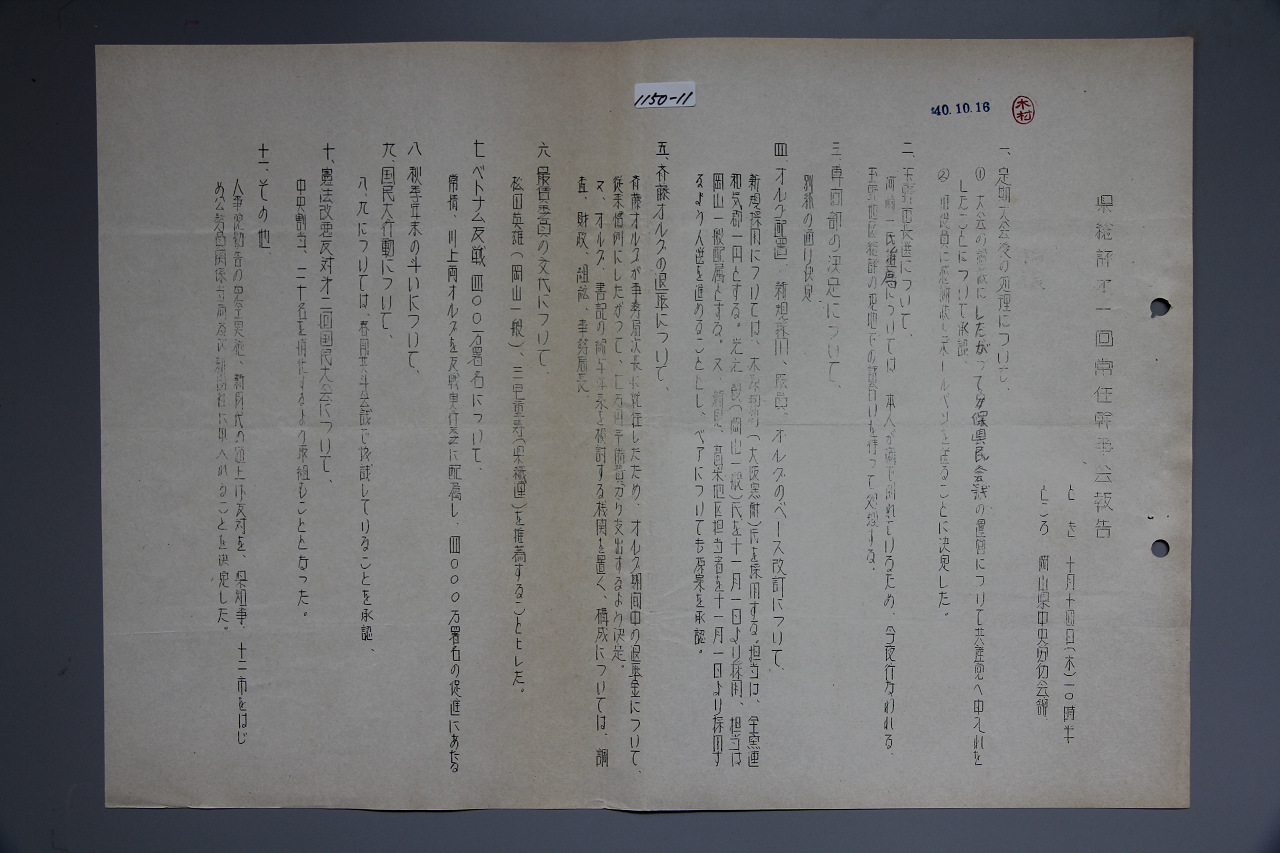 1150-11
40.10.16
木村
県総評才一回常任幹事会報告
とき 十月十四日(木)一〇時半
ところ 岡山県中央労働会館
一、定期大会後の処理について、
① 大会の決議にしたがって安保県民会議の運営について共産党へ申入れを
したことについて承認、
ボールペンを送ることに決定した。
二、玉野市長選について、
については、本人が病で倒れているため、今夜行なわれる、
玉野地区総評の現地での話合いを待って処理する、
三、専門部の決定について、
別紙の通り決定
四、オルグ配置、新規採用、役員、オルグのベース改訂について、
新規採用については、(大阪窯耐)氏を採用する。担当は、全窯連
和気郡一円とする。(岡山一般)氏を十一月一日より採用、担当は
岡山一般配属とする。又、新見、高梁地区担当者を十一月一日より採用す
るよう人選を進めることとし、ベアについても原案を承認。
五、斉藤オルグの退職について、
斉藤オルグが事務局次長に就任したため、オルグ期間中の退職金について、
従来慣例にしたがって、七万円予備費より支出するよう決定。
又、オルグ、書記の を検討する機関を置く、構成については、調
査、財政、組織、事務局長、
六、最賃委員の交代について、
松田英雄(岡山一般)、三宅重寿(県職連)を推薦することとした。
七、ベトナム反戦四〇〇万署名について、
常備、川上両オルグを反戦実行委に配属し、四〇〇〇万署名の促進にあたる
八、秋季年末の斗いについて、
九、国民大行動について、
八、九については、春闘共斗会議で協議していることを承認、
十、憲法改悪反対才二回国民大会について、
中央割当、二十名を消化するよう取組むこととなった。
十一、その他、
人事院勧告の完全実施、新聞代の値上げ反対を、県知事、十二市をはじ
め公務員関係 新聞社に申入れることを決定した。